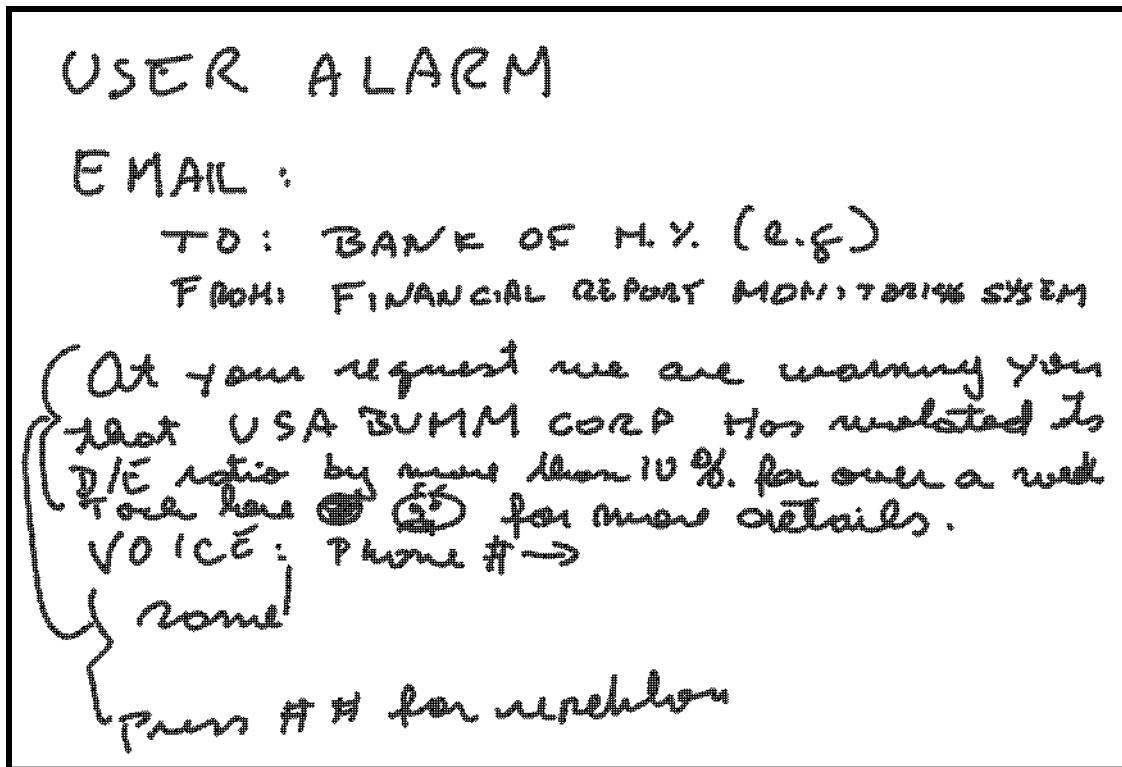 USER ALARM
EMAIL:
TO: BANK OF N.Y. (e.g)
FROM: FINANCIAL REPORT MONITORING SYSTEM
At your request we are warning you
that USA BUMM CORP Has violated Its
D/E ratio by more than 10%. for over a week
Touch here for more details.
VOICE: Phone # →
same
Press ## for repetition